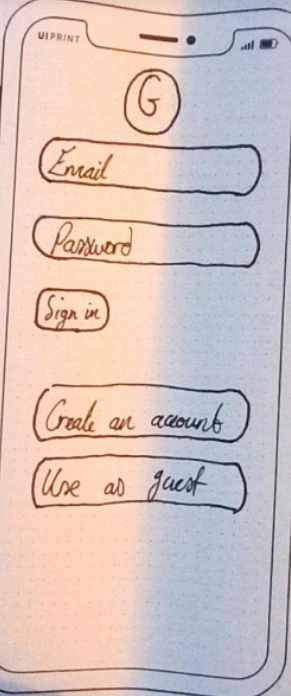 UI PRINT
G
Email
Password
Sign in
Create an account
Use as guest